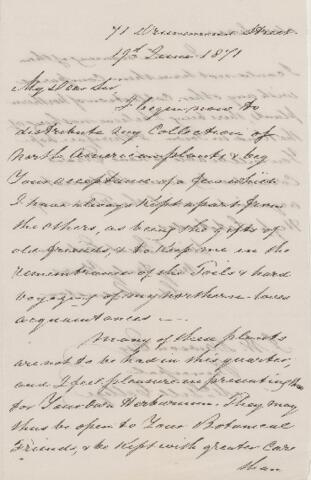 71 Drummond Street
19th June 1871
My Dear Sir,
I begin now to
distribute my Collection of
North American plants & beg
Your acceptance of a few which
I have always kept apart from
the others, as being the gifts of
old friends, & to keep me in the
remembrance of the toils & hard
voyaging of my northern
acquaintances
Many of these plants
are not to be had in this quarter,
and I feel pleasure in presenting them
for Your own Herbarium. They may
thus be open to Your Botanical
Friends, & be kept with greater care
than